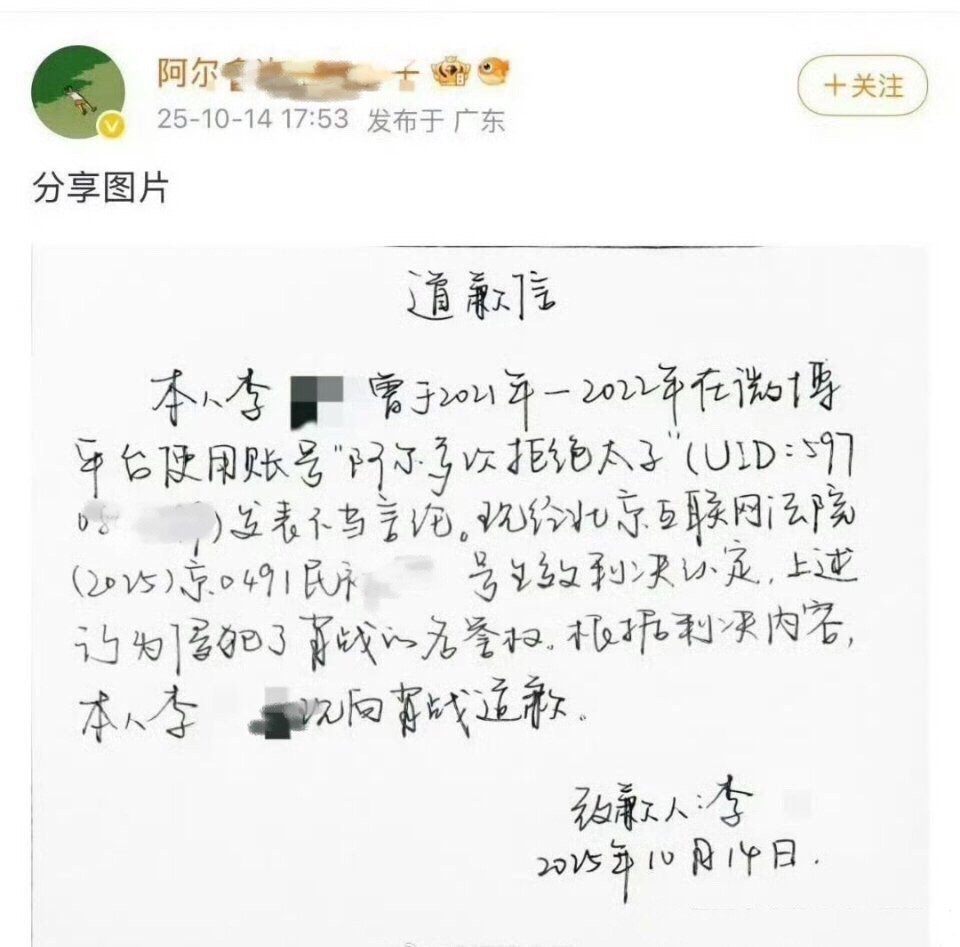 阿尔
+关注
25-10-14 17:53 发布于 广东
分享图片
道歉信
本人李 曾于2021年－2022年在微博
平台使用账号"阿尔多次拒绝太子"(UID:597
)发表不当言论。现经北京互联网法院
(2025)京0491民初 号生效判决认定,上述
行为侵犯了肖战的名誉权。根据判决内容,
本人李 现向肖战道歉。
致歉人:李
2025年10月14日.